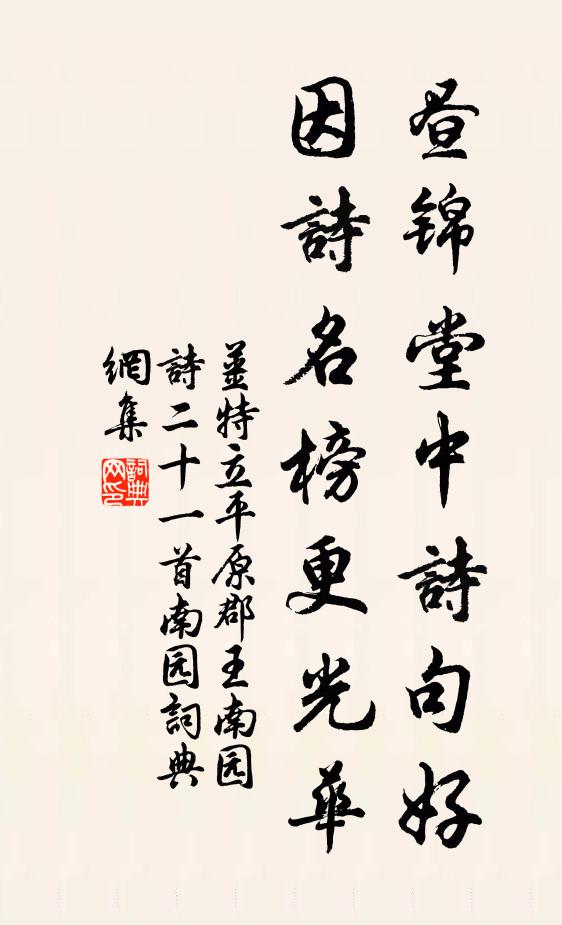 昼锦堂中詩句好
因詩名榜更光華
薑特立平原郡王南园
詩二十一首南园詞典
網集
詞典网印